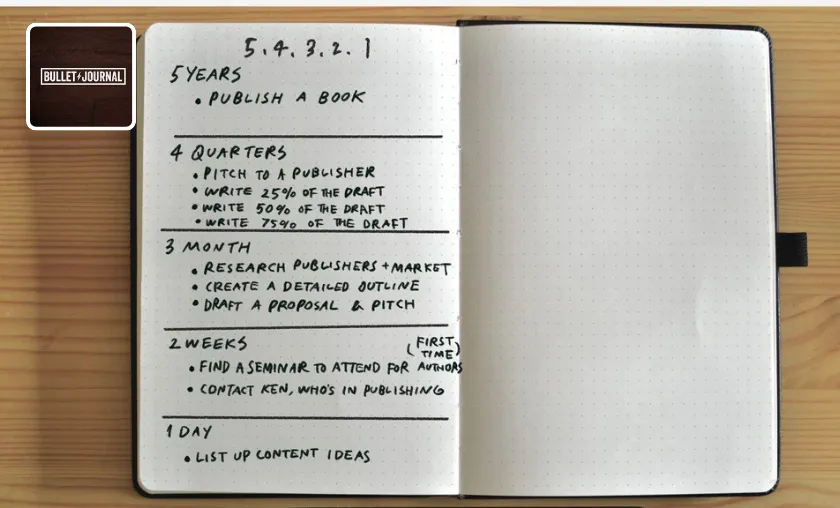 BULLET⚡JOURNAL
5.4.3.2.1
5 YEARS
• PUBLISH A BOOK
4 QUARTERS
• PITCH TO A PUBLISHER
• WRITE 25% OF THE DRAFT
• WRITE 50% OF THE DRAFT
• WRITE 75% OF THE DRAFT
3 MONTH
• RESEARCH PUBLISHERS + MARKET
• CREATE A DETAILED OUTLINE
• DRAFT A PROPOSAL & PITCH
2 WEEKS
(FIRST
TIME)
• FIND A SEMINAR TO ATTEND FOR AUTHORS
• CONTACT KEN, WHO'S IN PUBLISHING
1 DAY
• LIST UP CONTENT IDEAS